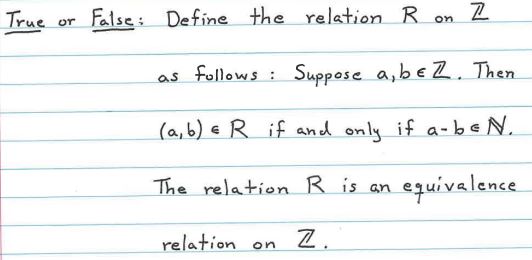 True or False: Define the relation R on ℤ
as follows: Suppose a,b∈ℤ. Then
(a,b) ∈ R if and only if a-b∈ℕ.
The relation R is an equivalence
relation on ℤ.